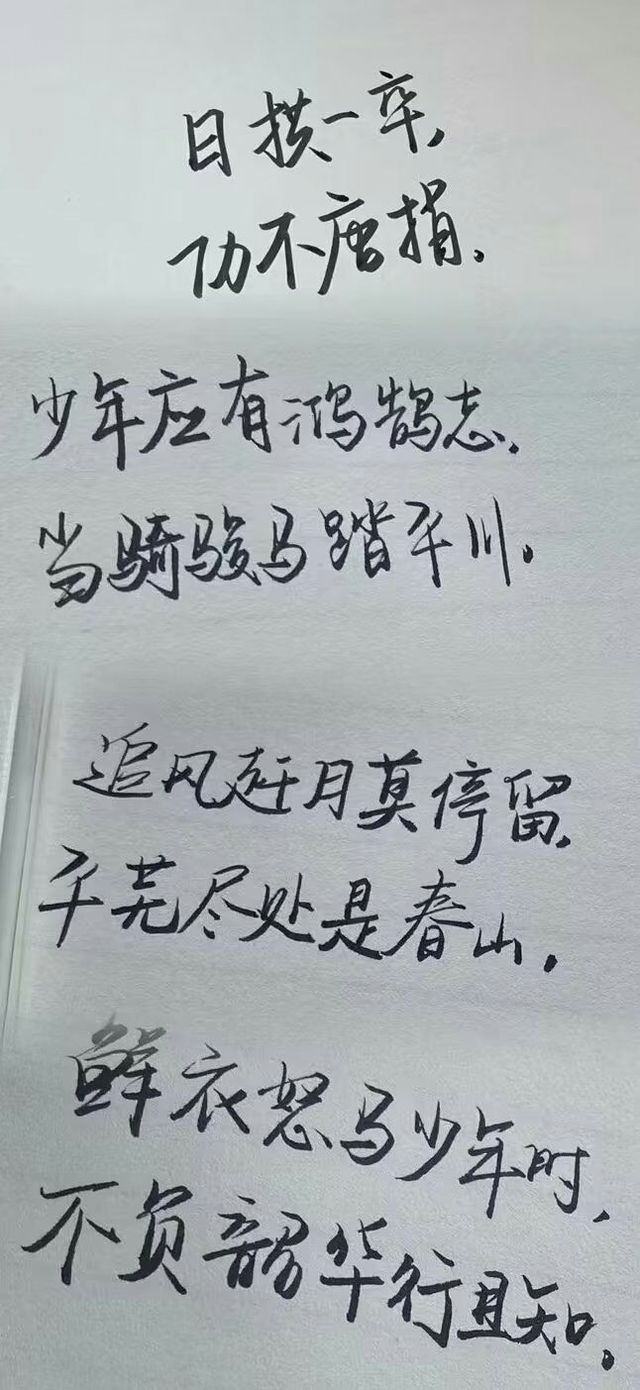 日拱一卒,
功不唐捐.
少年应有鸿鹄志.
当骑骏马踏平川.
追风赶月莫停留.
平芜尽处是春山.
鲜衣怒马少年时,
不负韶华行且知.